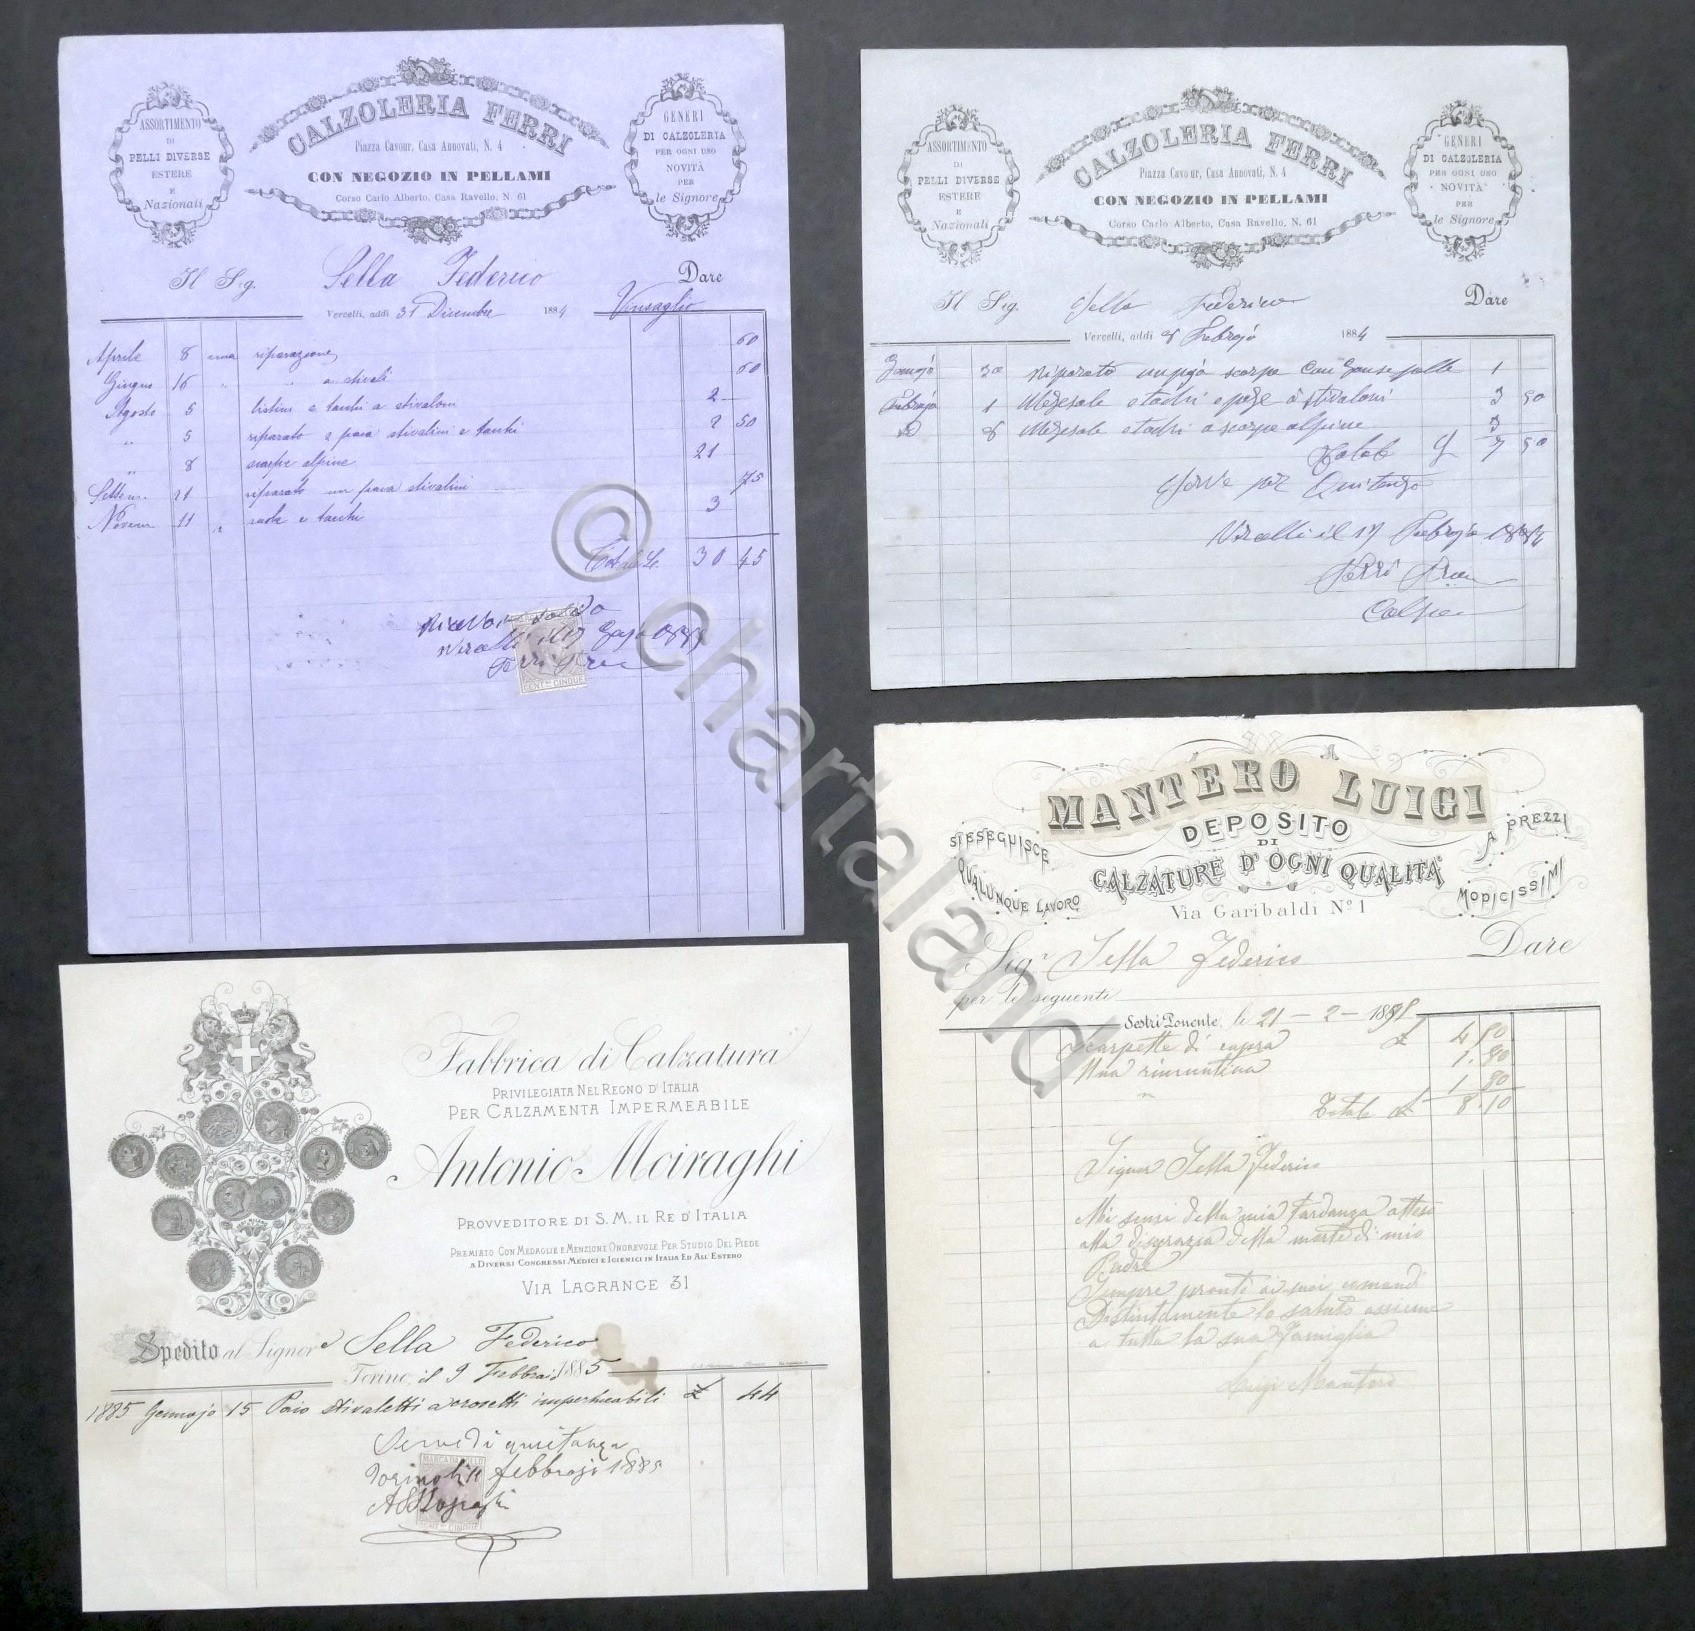 CALZOLERIA FERRI
Piazza Cavour, Casa Annovati, N. 4
CON NEGOZIO IN PELLAMI
Corso Carlo Alberto, Casa Ravello, N. 61
ASSORTIMENTO
DI
PELLI DIVERSE
ESTERE
E
Nazionali
GENERI
DI CALZOLERIA
PER OGNI USO
NOVITÀ
PER
le Signore
Il Sig. Sella Federico Dare
Vercelli, addì 31 Dicembre 1884
Aprile 8 una riparazione 60
Giugno 16 " " a stivali 60
Agosto 5 listini e tacchi a stivaloni 2
" 5 riparato e paia stivalini e tacchi 2 50
" 8 scarpe alpine 21
Settem. 21 riparato un paia stivalini 75
Novem 11 " suole e tacchi 3
Totale L. 30 45
CENT.MI CINQUE
CALZOLERIA FERRI
Piazza Cavour, Casa Annovati, N. 4
CON NEGOZIO IN PELLAMI
Corso Carlo Alberto, Casa Ravello, N. 61
ASSORTIMENTO
DI
PELLI DIVERSE
ESTERE
E
Nazionali
GENERI
DI CALZOLERIA
PER OGNI USO
NOVITÀ
PER
le Signore
Il Sig. Sella Federico Dare
Vercelli, addì 8 Febrajo 1884
30 riparato scarpe 1
Febrajo 1 Mezesole e tachi e peze a stivaloni 3 50
8 Mezesole e tachi a scarpe alpine 3
Totale 7 50
Serve per Quitanza
Vercelli il 17 Febrajo 1884
Ferri
Fabbrica di Calzatura
PRIVILEGIATA NEL REGNO D'ITALIA
PER CALZAMENTA IMPERMEABILE
Antonio Moiraghi
PROVVEDITORE DI S. M. IL RE D'ITALIA
PREMIATO CON MEDAGLIE E MENZIONE ONOREVOLE PER STUDIO DEL PIEDE
A DIVERSI CONGRESSI MEDICI E IGIENICI IN ITALIA ED ALL'ESTERO
VIA LAGRANGE 31
Spedito al Signore Sella Federico
Torino, il 9 Febbraio 1885
1885 Gennajo 15 Paio stivaletti a crosetti impermeabili £ 44
Serve di quitanza
Torino li 11 febbrajo 1885
A Moiraghi
MARCA DA BOLLO
CENT.MI CINQUE
MANTERO LUIGI
DEPOSITO
DI
CALZATURE D'OGNI QUALITÀ
Via Garibaldi N.o 1
SI ESEGUISCE
QUALUNQUE LAVORO
A PREZZI
MODICISSIMI
Sig.r Sella Federico Dare
per le seguenti
Sestri Ponente, le 21 - 2 - 1898
Scarpette di capra £ 4 50
Una rimontina 1.80
" 1 80
Totale £ 8.10
Signor Sella Federico
Mi scusi della mia tardanza atteso
alla disgrazia della morte di mio
Padre
Sempre pronto ai suoi comandi
Distintamente lo saluto assieme
a tutta la sua Famiglia
Luigi Mantero
© chartaland